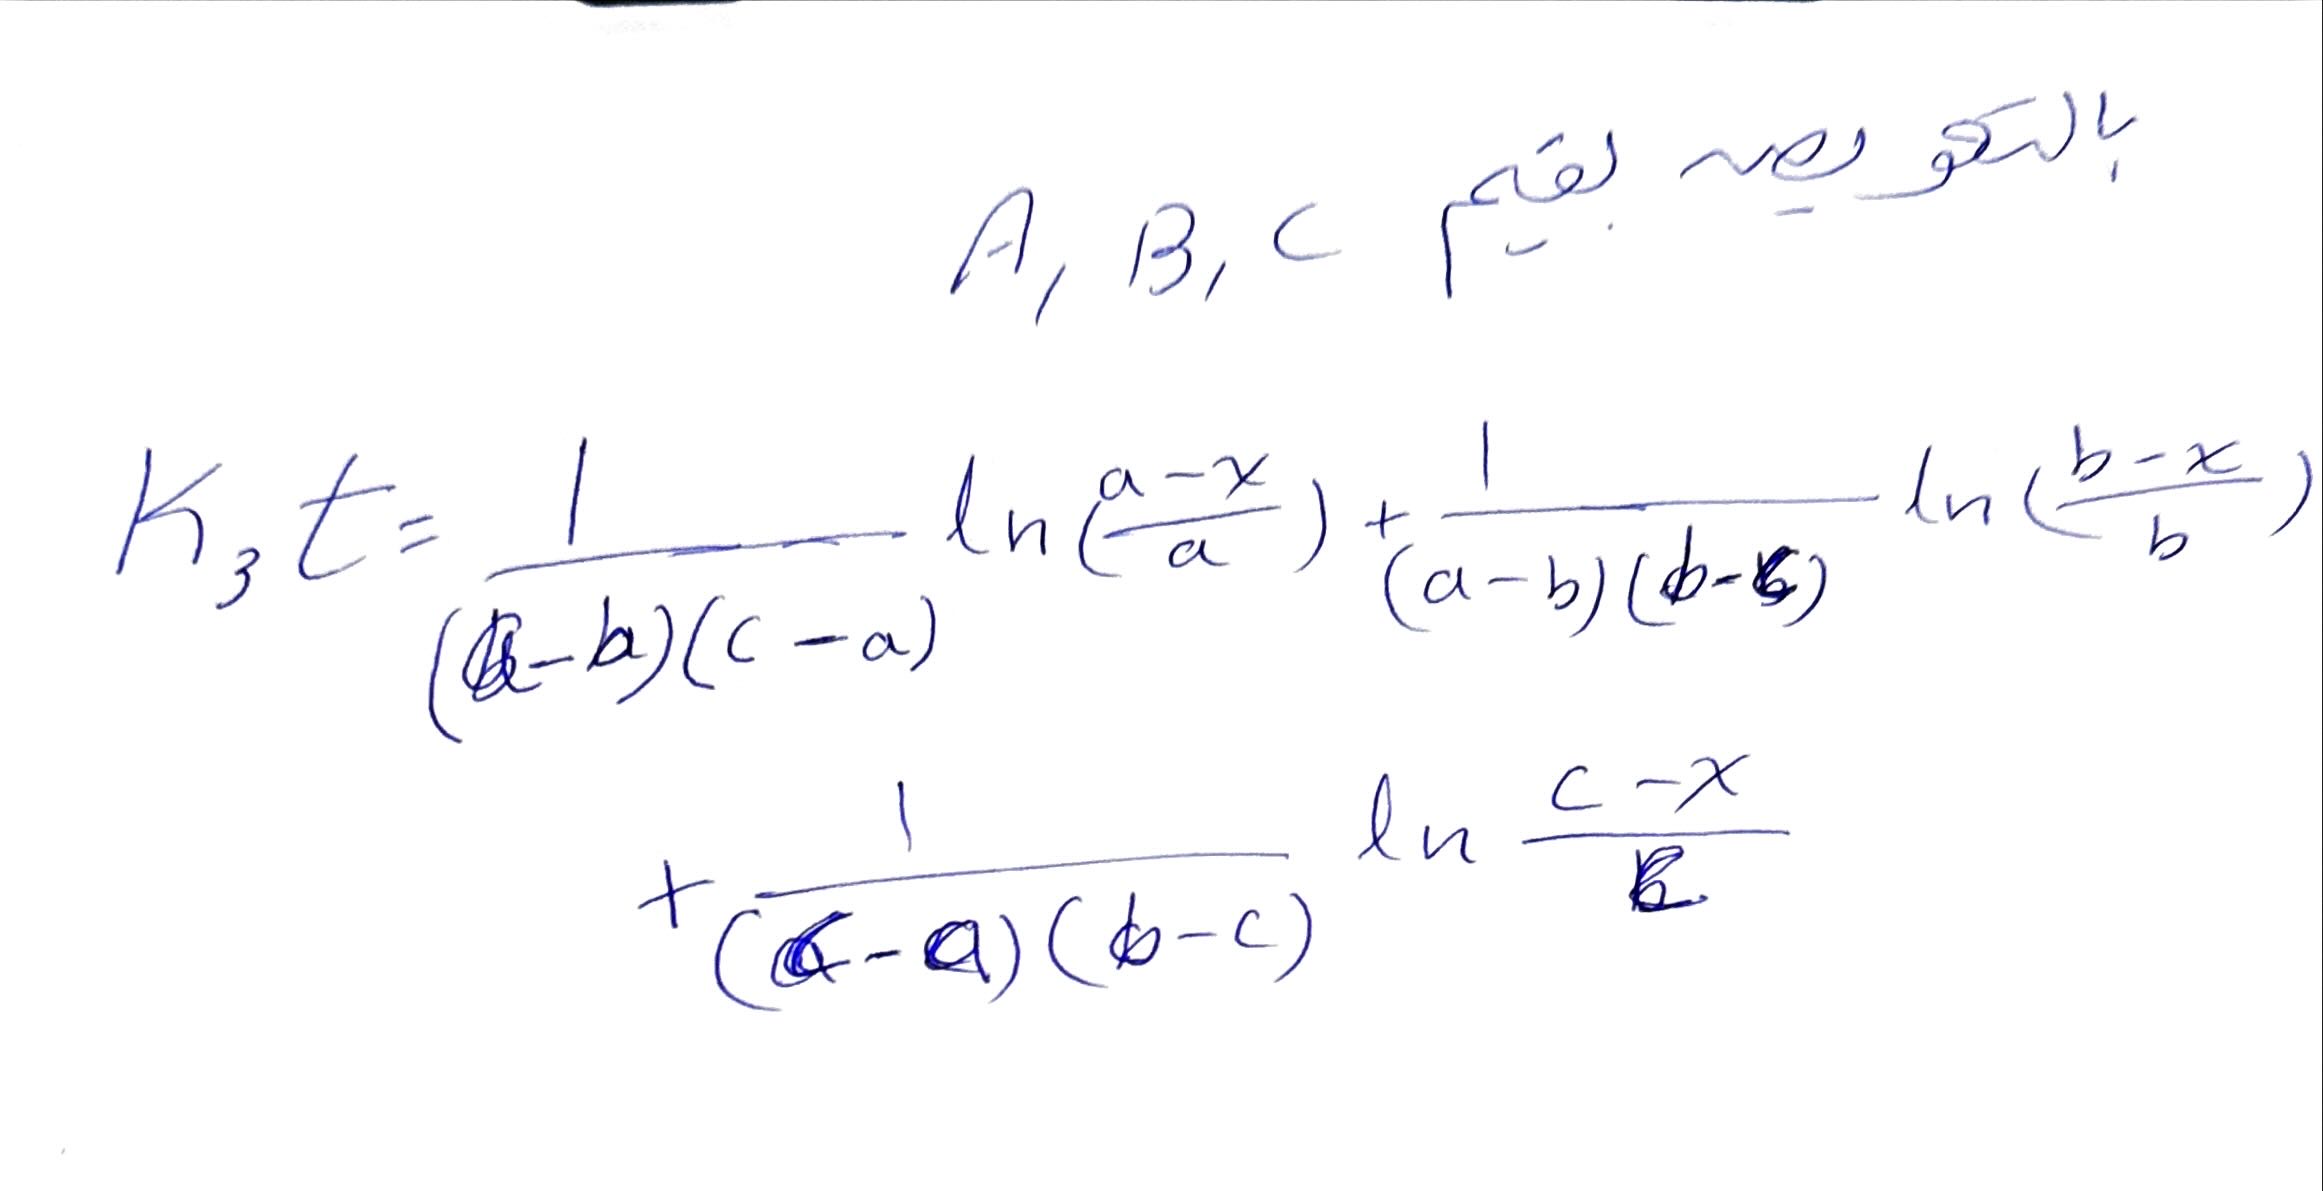 بالتعويض بقيم A, B, C
K₃t = 1/((a-b)(c-a)) ln((a-x)/a) + 1/((a-b)(b-c)) ln((b-x)/b)
+ 1/((c-a)(b-c)) ln (c-x)/c